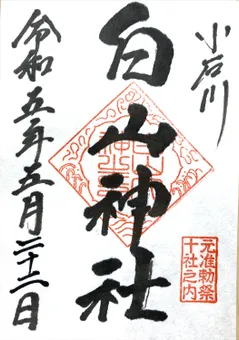 小石川
白山神社
元准勅祭
十社之内
令和五年五月二十二日